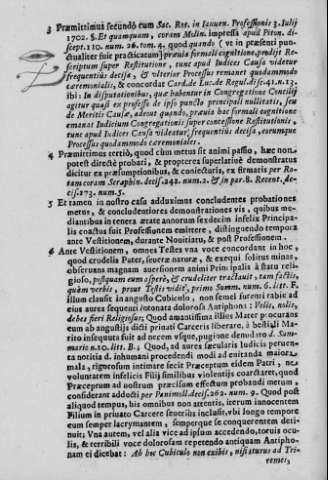 3 Præmittimus secundò cum Sac. Rot. in Ianuen. Professionis 3. Iulij
1702. §. Et quamquam, coram Molin. impressa apud Piton. di-
scept. 110. num. 26. tom. 4. quod quando (ve in præsenti pun-
ctualiter fuit practicatum) prævia formali cognitione, prodijt Re-
scriptum super Restitutione, tunc apud Iudices Causa videtur
frequentiùs decisa, & vlterior Processus remanet quodammodo
cæremonialis, & concordat Card. de Luc. de Regul. disc. 41. n. 13.
ibi: In disputationibus, quæ habentur in Congregatione Concilij
agitur quasi ex professo de ipso puncto principali nullitatis, seu
de Meritis Causæ, adeout quando, prævia hac formali cognitione
emanat Iudicium Congregationis super concessione Restitutionis,
tunc apud Iudices Causa videatur frequentiùs decisa, eorumque
Processus quodammodo cæremoniales.
4 Præmittimus tertiò, quod cùm metus sit animi passio, hæc non
potest directè probari, & propterea superlatiuè demonstratus
dicitur ex præsumptionibus, & coniecturis, ex firmatis per Ro-
tam coram Seraphin. decis. 242. num. 2. & in par. 8. Recent. de-
cis. 273. num. 5.
5 Et tamen in nostro casu adduximus concludentes probationes
metus, & concludentiores demonstrationes vis, quibus me-
diantibus in tenera ætate annorum sexdecim infelix Principa-
lis coactus fuit Professionem emittere, distinguendo tempora
ante Vestitionem, durante Nouitiatu, & post Professionem.
6 Ante Vestitionem, omnes Testes vna voce concordant in hoc,
quod crudelis Pater, seueræ naturæ, & exequi solitus minas,
obseruans magnam auersionem animi Principalis à statu reli-
gioso, pluquam eum asperè, & crudeliter tractauit, tam factis,
quàm verbis, prout Testis vidit, primo Summ. num. 6. litt. F.
illum clausit in angusto Cubiculo, non semel surenti rabie ad
eius aures sequenti intonata dolorosa Antiphona: Velis, nolis,
debes fieri Religiosus; Quod amantissima illius Mater procurans
eum ab angustijs dicti priuati Carceris liberare, à bestiali Ma-
rito insequuta fuit ad necem vsque, pugione denudato d. Sum-
mario n. 10. litt. B. Quod, ad aures sæcularis Iudicis peruen-
ta notitia d. inhumani procedendi modi ad euitanda maiora
mala, rigorosum intimare fecit Præceptum eidem Patri, ne
voluntatem infelicis Filij similibus violentijs coarctaret, quod
Præceptum ad nostrum præcisum effectum probandi metum
considerant adducti per Panimoll. decis. 262. num. 9. Quod post
aliquod tempus, his omnibus non attentis, iterum innocentem
Filium in priuato Carcere seueriùs inclusit, vbi longo tempore
eum semper lacrymantem, semperque se conquerentem deti-
nuit; Vna autem, vel alia vice ad ipsum accedendo, toruis ocu-
lis, & terribili voce dolorosam repetendo antiquam Antipho-
nam ei dicebat: Ab hoc Cubiculo non exibis, nisi iturus ad Tri-
remes;